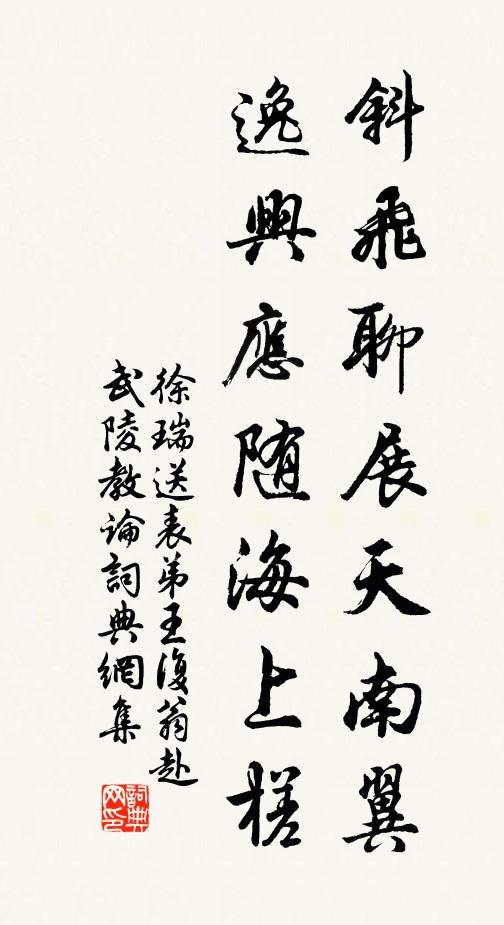 斜飛聊展天南翼
逸興應随海上槎
徐瑞送表弟王復翁赴
武陵教論詞典網集
詞典网印